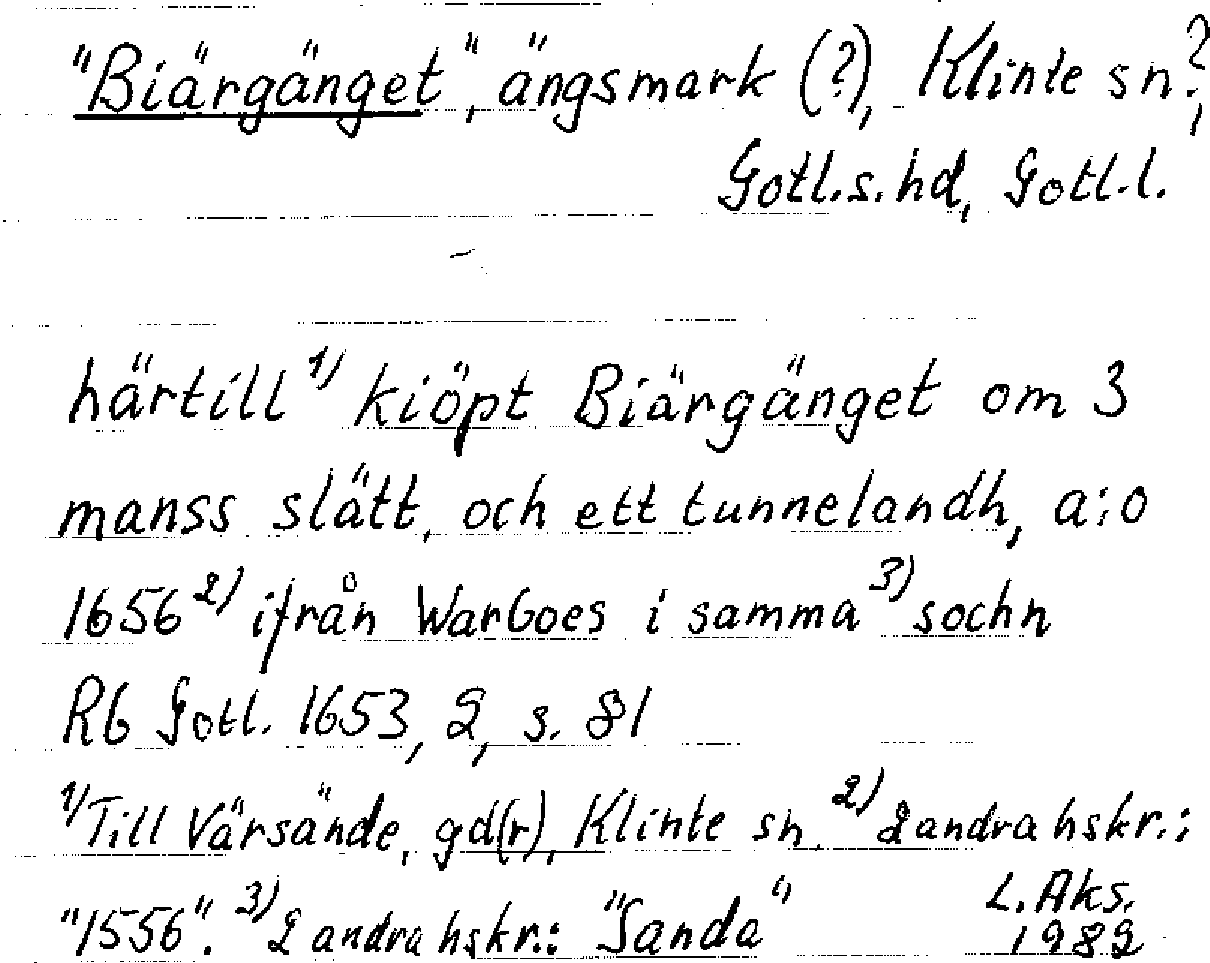 "Biärgänget", ängsmark (?), Klinte sn?,
Gotl.s.hd, Gotl.l.
härtill 1) kiöpt Biärgänget om 3
manss slätt, och ett tunnelandh, a:o
1656 2) ifrån Warboes i samma 3) sochn
Rb Gotl. 1653, 2, s. 81
1) Till Värsände, gd(r), Klinte sn. 2) 2 andra hskr.:
"1556". 3) 2 andra hskr.: "Sanda"
L. Aks.
1982